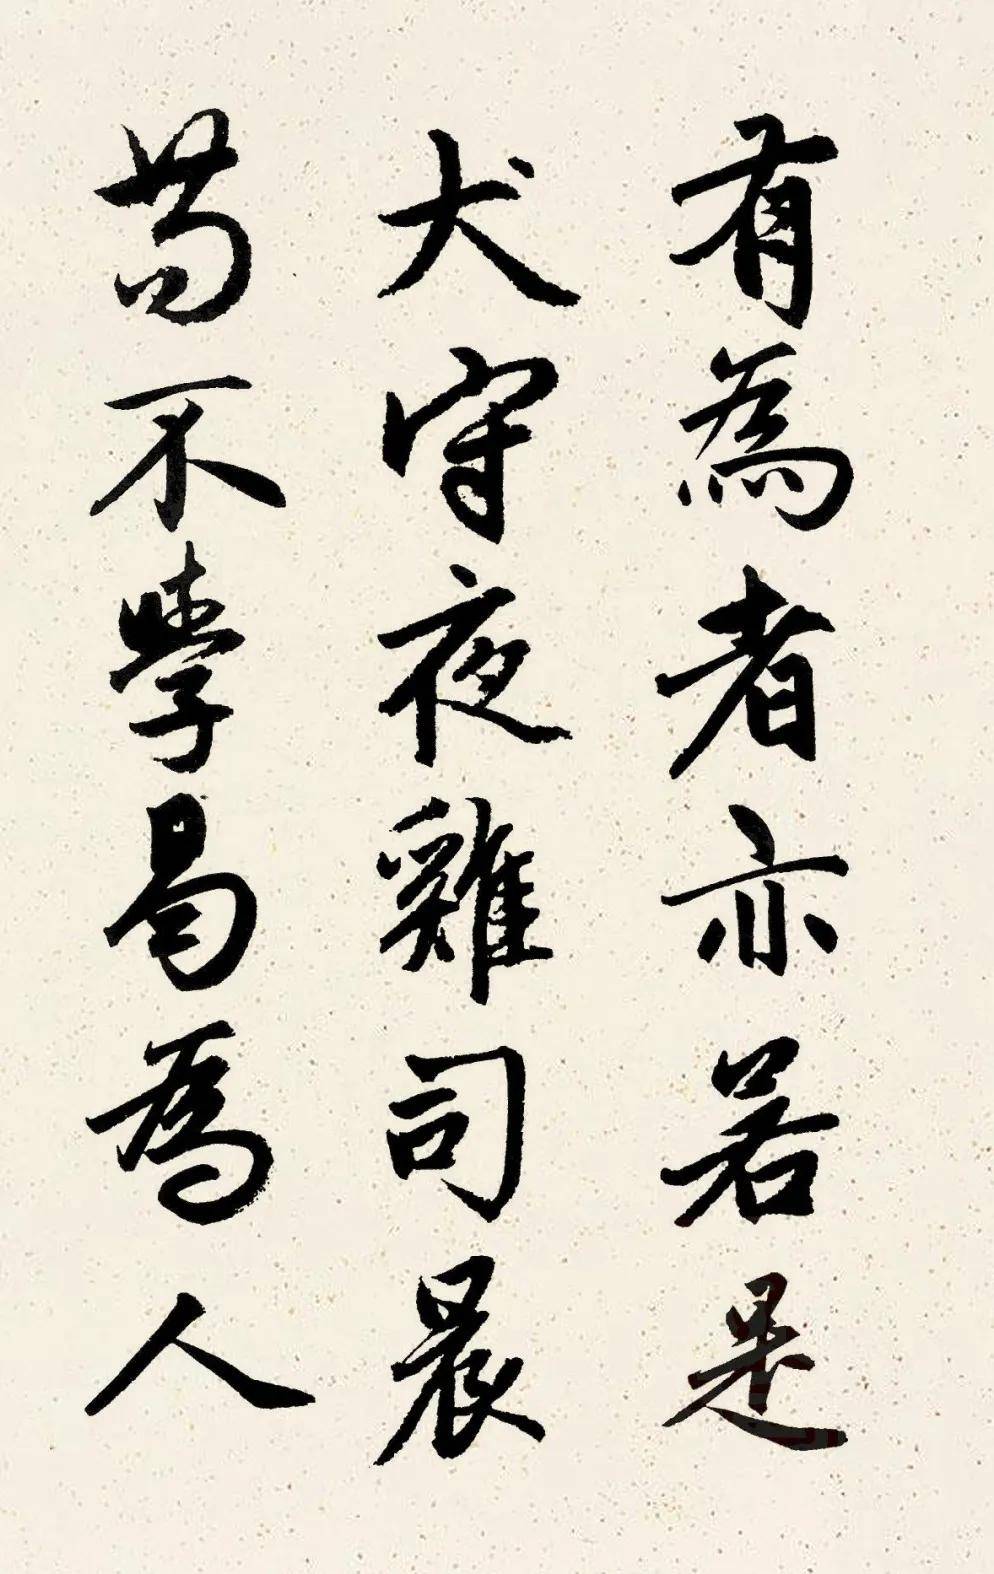 有為者亦若是
犬守夜雞司晨
苟不學曷為人